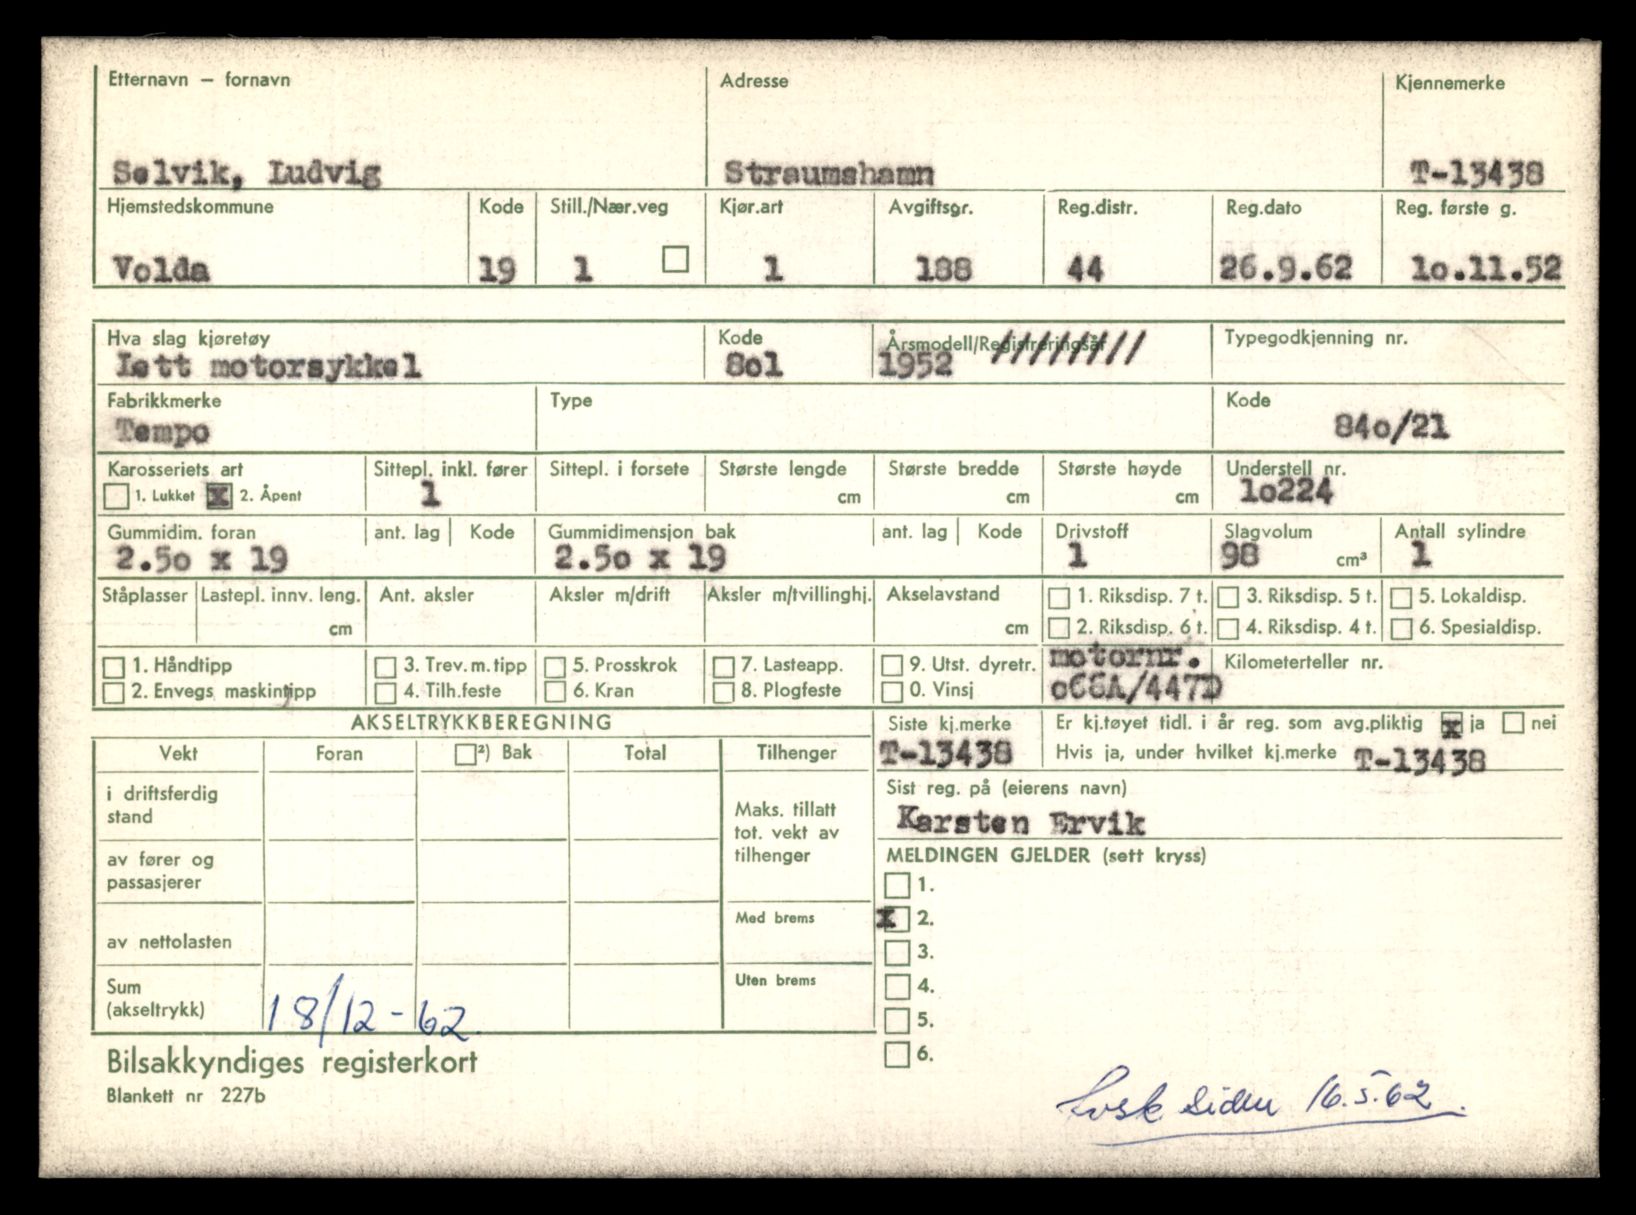 Etternavn — fornavn Adresse Kjennemerke
Selvik, Ludvig Straumshamn T-13438
Hjemstedskommune Kode Still./Nær.veg Kjør.art Avgiftsgr. Reg.distr. Reg.dato Reg. første g.
Volda 19 1 1 188 44 26.9.62 1o.11.52
Hva slag kjøretøy Kode Årsmodell/Registreringsår Typegodkjenning nr.
Lett motorsykkel 8o1 1952 /////////
Fabrikkmerke Type Kode
Tempo 84o/21
Karosseriets art Sittepl. inkl. fører Sittepl. i forsete Største lengde Største bredde Største høyde Understell nr.
1. Lukket x 2. Åpent 1 cm cm cm 1o224
Gummidim. foran ant. lag Kode Gummidimensjon bak ant. lag Kode Drivstoff Slagvolum Antall sylindre
2.5o x 19 2.5o x 19 1 98 cm³ 1
Ståplasser Lastepl. innv. leng. Ant. aksler Aksler m/drift Aksler m/tvillinghj. Akselavstand 1. Riksdisp. 7 t. 3. Riksdisp. 5 t. 5. Lokaldisp.
cm cm 2. Riksdisp. 6 t. 4. Riksdisp. 4 t. 6. Spesialdisp.
1. Håndtipp 3. Trev. m. tipp 5. Prosskrok 7. Lasteapp. 9. Utst. dyretr. motornr. Kilometerteller nr.
2. Envegs maskintipp 4. Tilh.feste 6. Kran 8. Plogfeste 0. Vinsj o66A/447D
AKSELTRYKKBEREGNING Siste kj.merke Er kj.tøyet tidl. i år reg. som avg.pliktig x ja nei
Vekt Foran ²) Bak Total Tilhenger T-13438 Hvis ja, under hvilket kj.merke T-13438
i driftsferdig stand Maks. tillatt tot. vekt av tilhenger Sist reg. på (eierens navn)
Karsten Ervik
av fører og passasjerer MELDINGEN GJELDER (sett kryss)
1.
Med brems x 2.
av nettolasten 3.
Sum (akseltrykk) 18/12-62. Uten brems 4.
5.
Bilsakkyndiges registerkort 6.
Blankett nr 227b
16.5.62.